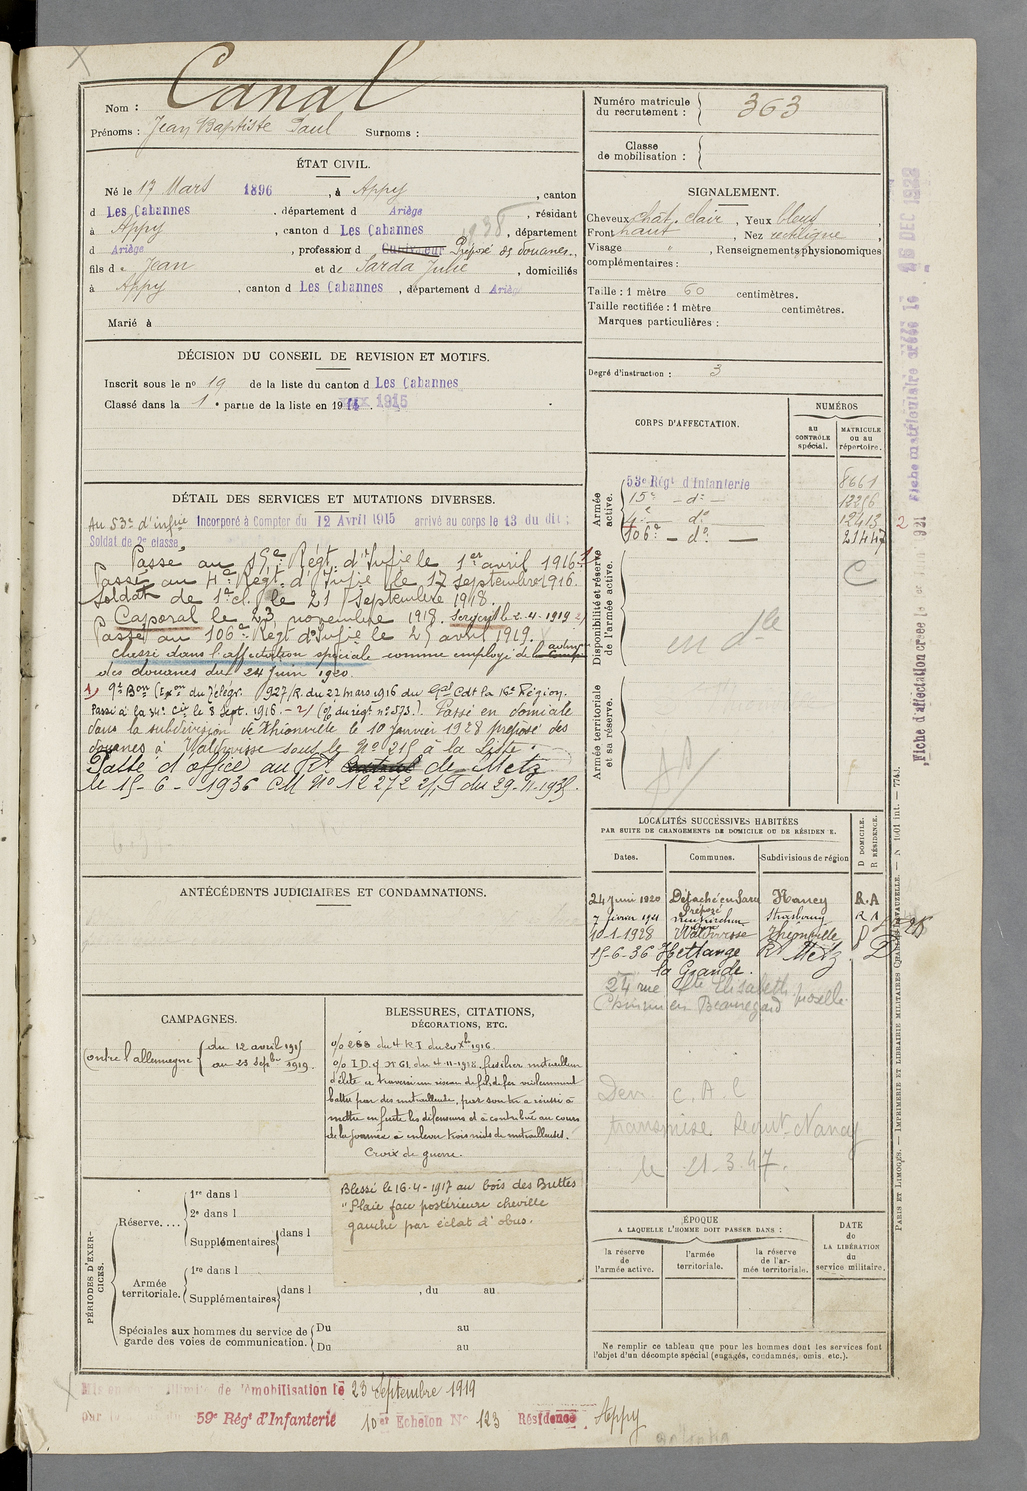 Canal
Nom :
Prénoms : Jean Baptiste Paul Surnoms :
Numéro matricule
du recrutement : 363
Classe
de mobilisation :
ÉTAT CIVIL.
Né le 17 Mars 1896, à Appy, canton
d Les Cabannes, département d Ariège, résidant
à Appy, canton d Les Cabannes, département
d Ariège, profession d Cultivateur Préposé des douanes.,
fils de Jean et de Sarda Julie, domiciliés
à Appy, canton d Les Cabannes, département d Ariège
Marié à
SIGNALEMENT.
Cheveux chat. clair, Yeux bleus,
Front haut, Nez rectiligne,
Visage " , Renseignements physionomiques
complémentaires :
Taille : 1 mètre 60 centimètres.
Taille rectifiée : 1 mètre centimètres.
Marques particulières :
Degré d'instruction : 3
DÉCISION DU CONSEIL DE REVISION ET MOTIFS.
Inscrit sous le no 19 de la liste du canton d Les Cabannes
Classé dans la 1e partie de la liste en 19 1915
CORPS D'AFFECTATION.
NUMÉROS
au
CONTRÔLE
spécial.
MATRICULE
ou au
répertoire.
Armée
active.
53e Régt d'Infanterie 8661
15e - do - 12256
4e do 12413 2
106e - do - 21447
Disponibilité et réserve
de l'armée active.
C
en dle
Armée territoriale
et sa réserve.
DÉTAIL DES SERVICES ET MUTATIONS DIVERSES.
Au 53e d'infie Incorporé à Compter du 12 Avril 1915 arrivé au corps le 13 du dit ;
Soldat de 2e classe
Passé au 15e Régt. d'Infie le 1er avril 1916 1)
Passé au 4e Régt d'Infie le 17 septembre 1916.
Soldat de 1e cl. le 21 Septembre 1918.
Caporal le 23 novembre 1918. Sergent le 2-4-1919 2)
Passé au 106e Régt d'Infie le 25 avril 1919.
Classé dans l'affectation spéciale comme employé de l'admon
des douanes du 24 juin 1920.
1) 9e Bon (Exon du Télégr. 927/R. du 22 mars 1916 du Gal Cdt la 16e Région.
Passé à la 34e Cie le 8 Sept. 1916. - 2) (O/ du régt no 573.) Passé en domicile
dans la subdivision de Thionville le 10 janvier 1928 préposé des
douanes à Waldwisse sous le No 215 à la Liste.
Passé d'office au Rt de Metz
le 15-6-1936 CM No 12272 2/1.T du 29-11-1935.
ANTÉCÉDENTS JUDICIAIRES ET CONDAMNATIONS.
LOCALITÉS SUCCESSIVES HABITÉES
PAR SUITE DE CHANGEMENTS DE DOMICILE OU DE RÉSIDENCE.
Dates. Communes. Subdivisions de région
D DOMICILE.
R RÉSIDENCE.
24 Juin 1920 Détaché en Sarre Nancy R.A
Préposé
7 février 1921 Neunkirchen Strasbourg R A
10-1-1928 Waldwisse Thionville D
15-6-36 Hettange Rt Metz D
la Grande.
24 rue Ste Elisabeth
Chemin en Beauregard Moselle.
Dem. C. A. C
transmise Recrut. Nancy
le 21.3.47.
CAMPAGNES.
Contre l'allemagne du 12 avril 1915
au 23 Septbre 1919.
BLESSURES, CITATIONS,
DÉCORATIONS, ETC.
O/ 288 du 4e R.I du 20 Xbre 1916.
O/ I.D. 9 No 61. du 4-11-1918. fusilier mitrailleur
d'élite a traversé un réseau de fil de fer violemment
battu par des mitrailleuses, par son tir a réussi à
mettre en fuite les défenseurs et a contribué au cours
de la journée à enlever trois nids de mitrailleuses.
Croix de guerre.
Blessé le 16-4-1917 au bois des Buttes
"Plaie face postérieure cheville
gauche par éclat d'obus.
PÉRIODES D'EXERCICES.
Réserve....
1re dans l
2e dans l
Supplémentaires dans l
Armée
territoriale.
1re dans l
Supplémentaires dans l , du au
Spéciales aux hommes du service de
garde des voies de communication.
Du au
Du au
ÉPOQUE
A LAQUELLE L'HOMME DOIT PASSER DANS :
la réserve
de
l'armée active.
l'armée
territoriale.
la réserve
de l'ar-
mée territoriale.
DATE
de
LA LIBÉRATION
du
service militaire.
Ne remplir ce tableau que pour les hommes dont les services font
l'objet d'un décompte spécial (engagés, condamnés, omis, etc.).
Mis en illimité de démobilisation le 23 Septembre 1919
par le 59e Régt d'Infanterie 10er Echelon No 123 Résidence Appy
Fiche matriculaire créée le DEC 1928
Fiche d'affectation créée le 1921
PARIS ET LIMOGES. — IMPRIMERIE ET LIBRAIRIE MILITAIRES CHARLES-LAVAUZELLE. — N 1601 int. — 7743.